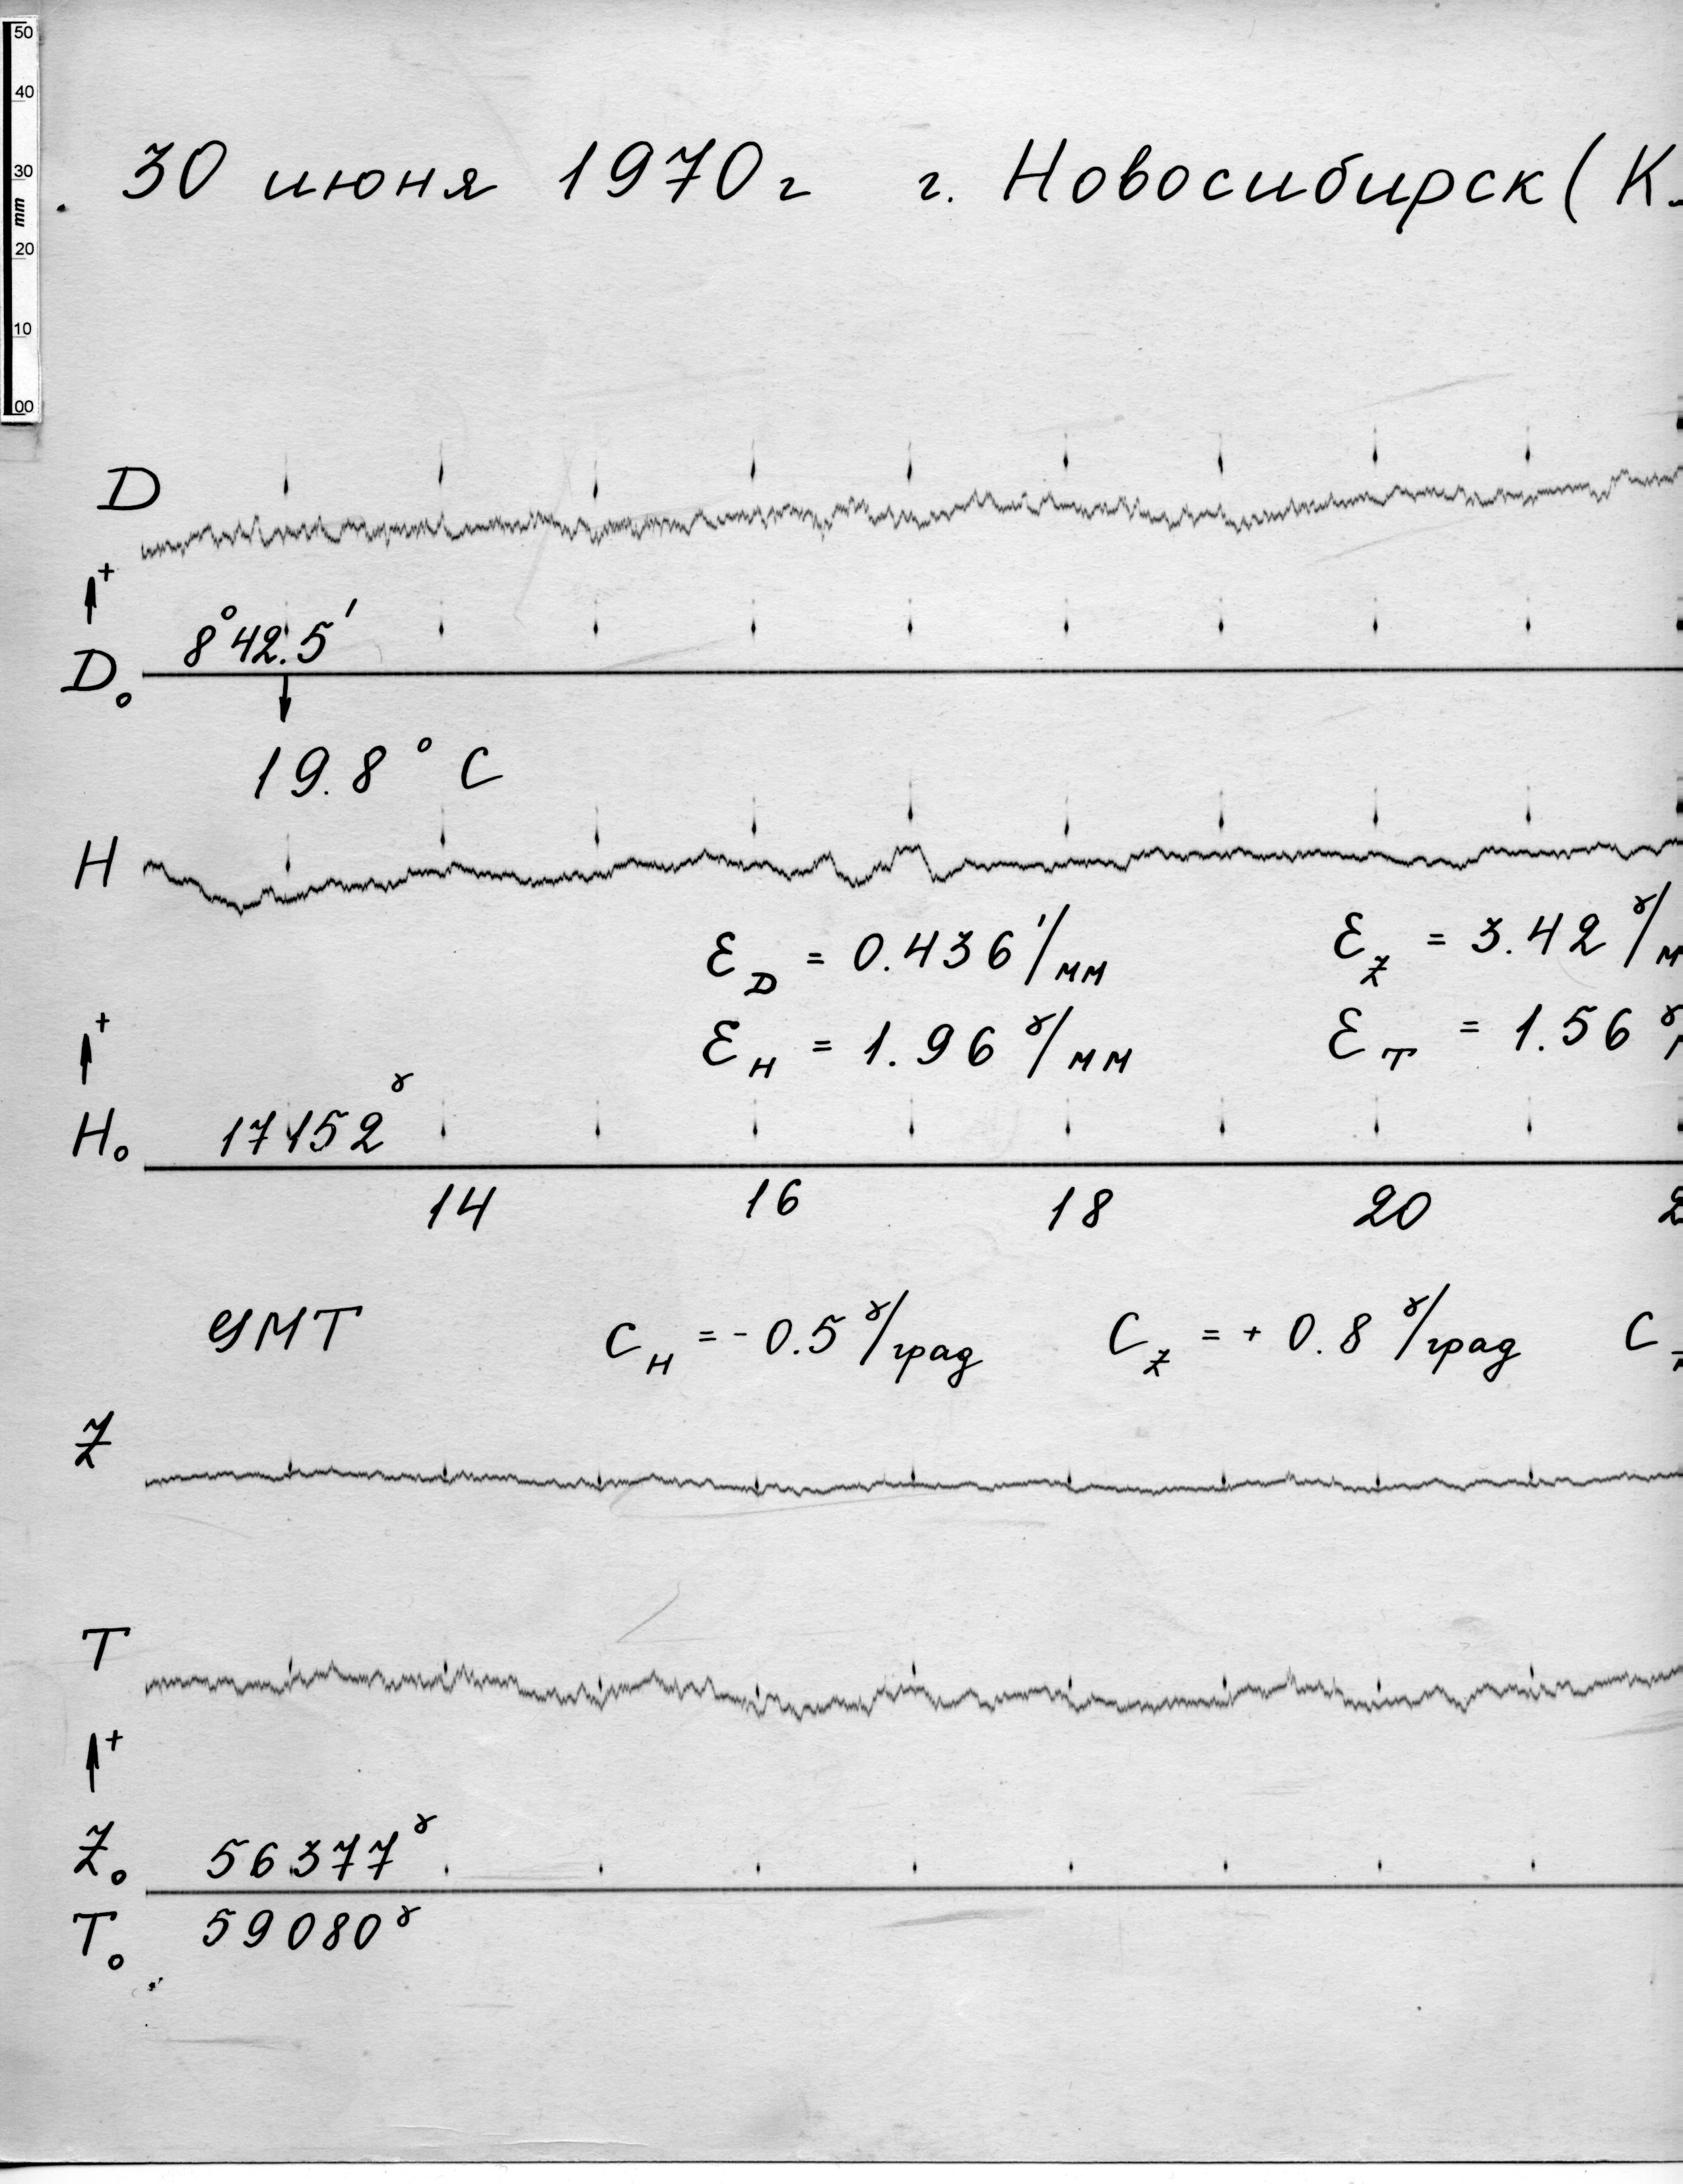 50
40
30
mm
20
10
00
30 июня 1970г г. Новосибирск (К.
D
+
8°42.5′
D₀
19.8° C
H
ε_D = 0.436′/мм ε_Z = 3.42 γ/м
+
ε_H = 1.96 γ/мм ε_T = 1.56 γ/
H₀ 17152 γ
14 16 18 20 2
УМТ C_H = - 0.5 γ/град C_Z = + 0.8 γ/град C
Z
T
+
Z₀ 56377 γ
T₀ 59080 γ